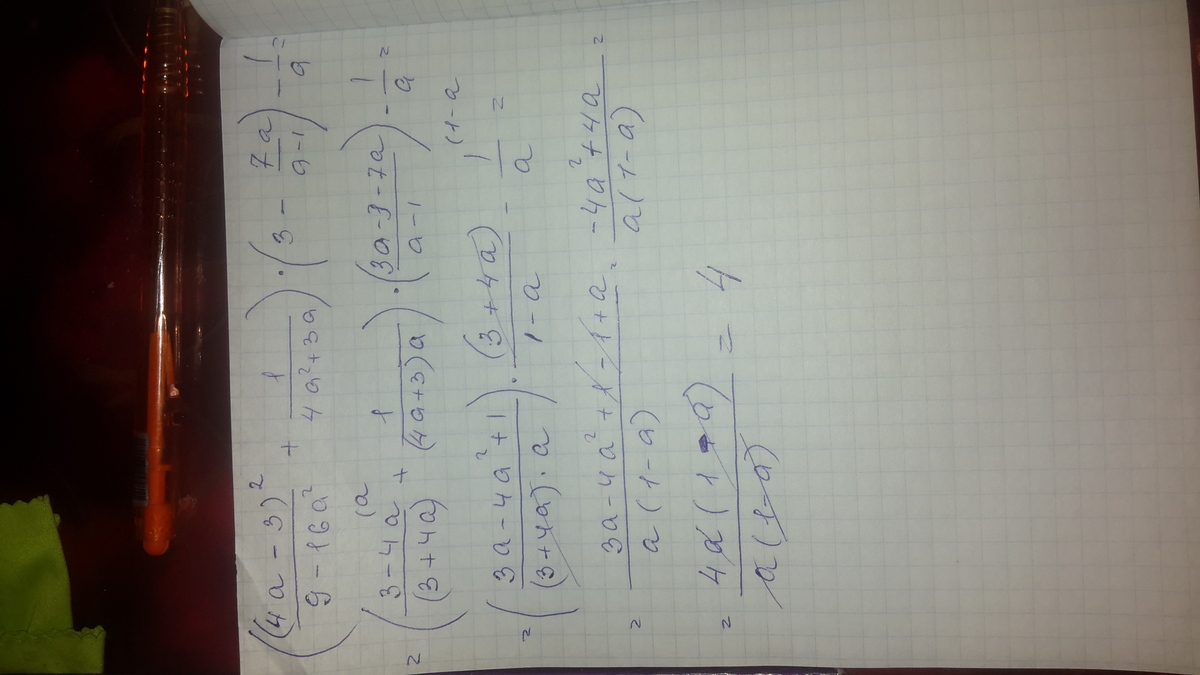 ((4a - 3)² / (9 - 16a²) + 1 / (4a² + 3a)) · (3 - 7a / (a - 1)) - 1/a =
= ((3 - 4a) / (3 + 4a) (a + 1 / ((4a + 3)a)) · ((3a - 3 - 7a) / (a - 1)) - 1/a =
= ((3a - 4a² + 1) / ((3 + 4a) · a)) · (3 + 4a) / (1 - a) - 1/a (1 - a =
= (3a - 4a² + 1 - 1 + a) / (a(1 - a)) = (-4a² + 4a) / (a(1 - a)) =
= 4a(1 - a) / (a(1 - a)) = 4